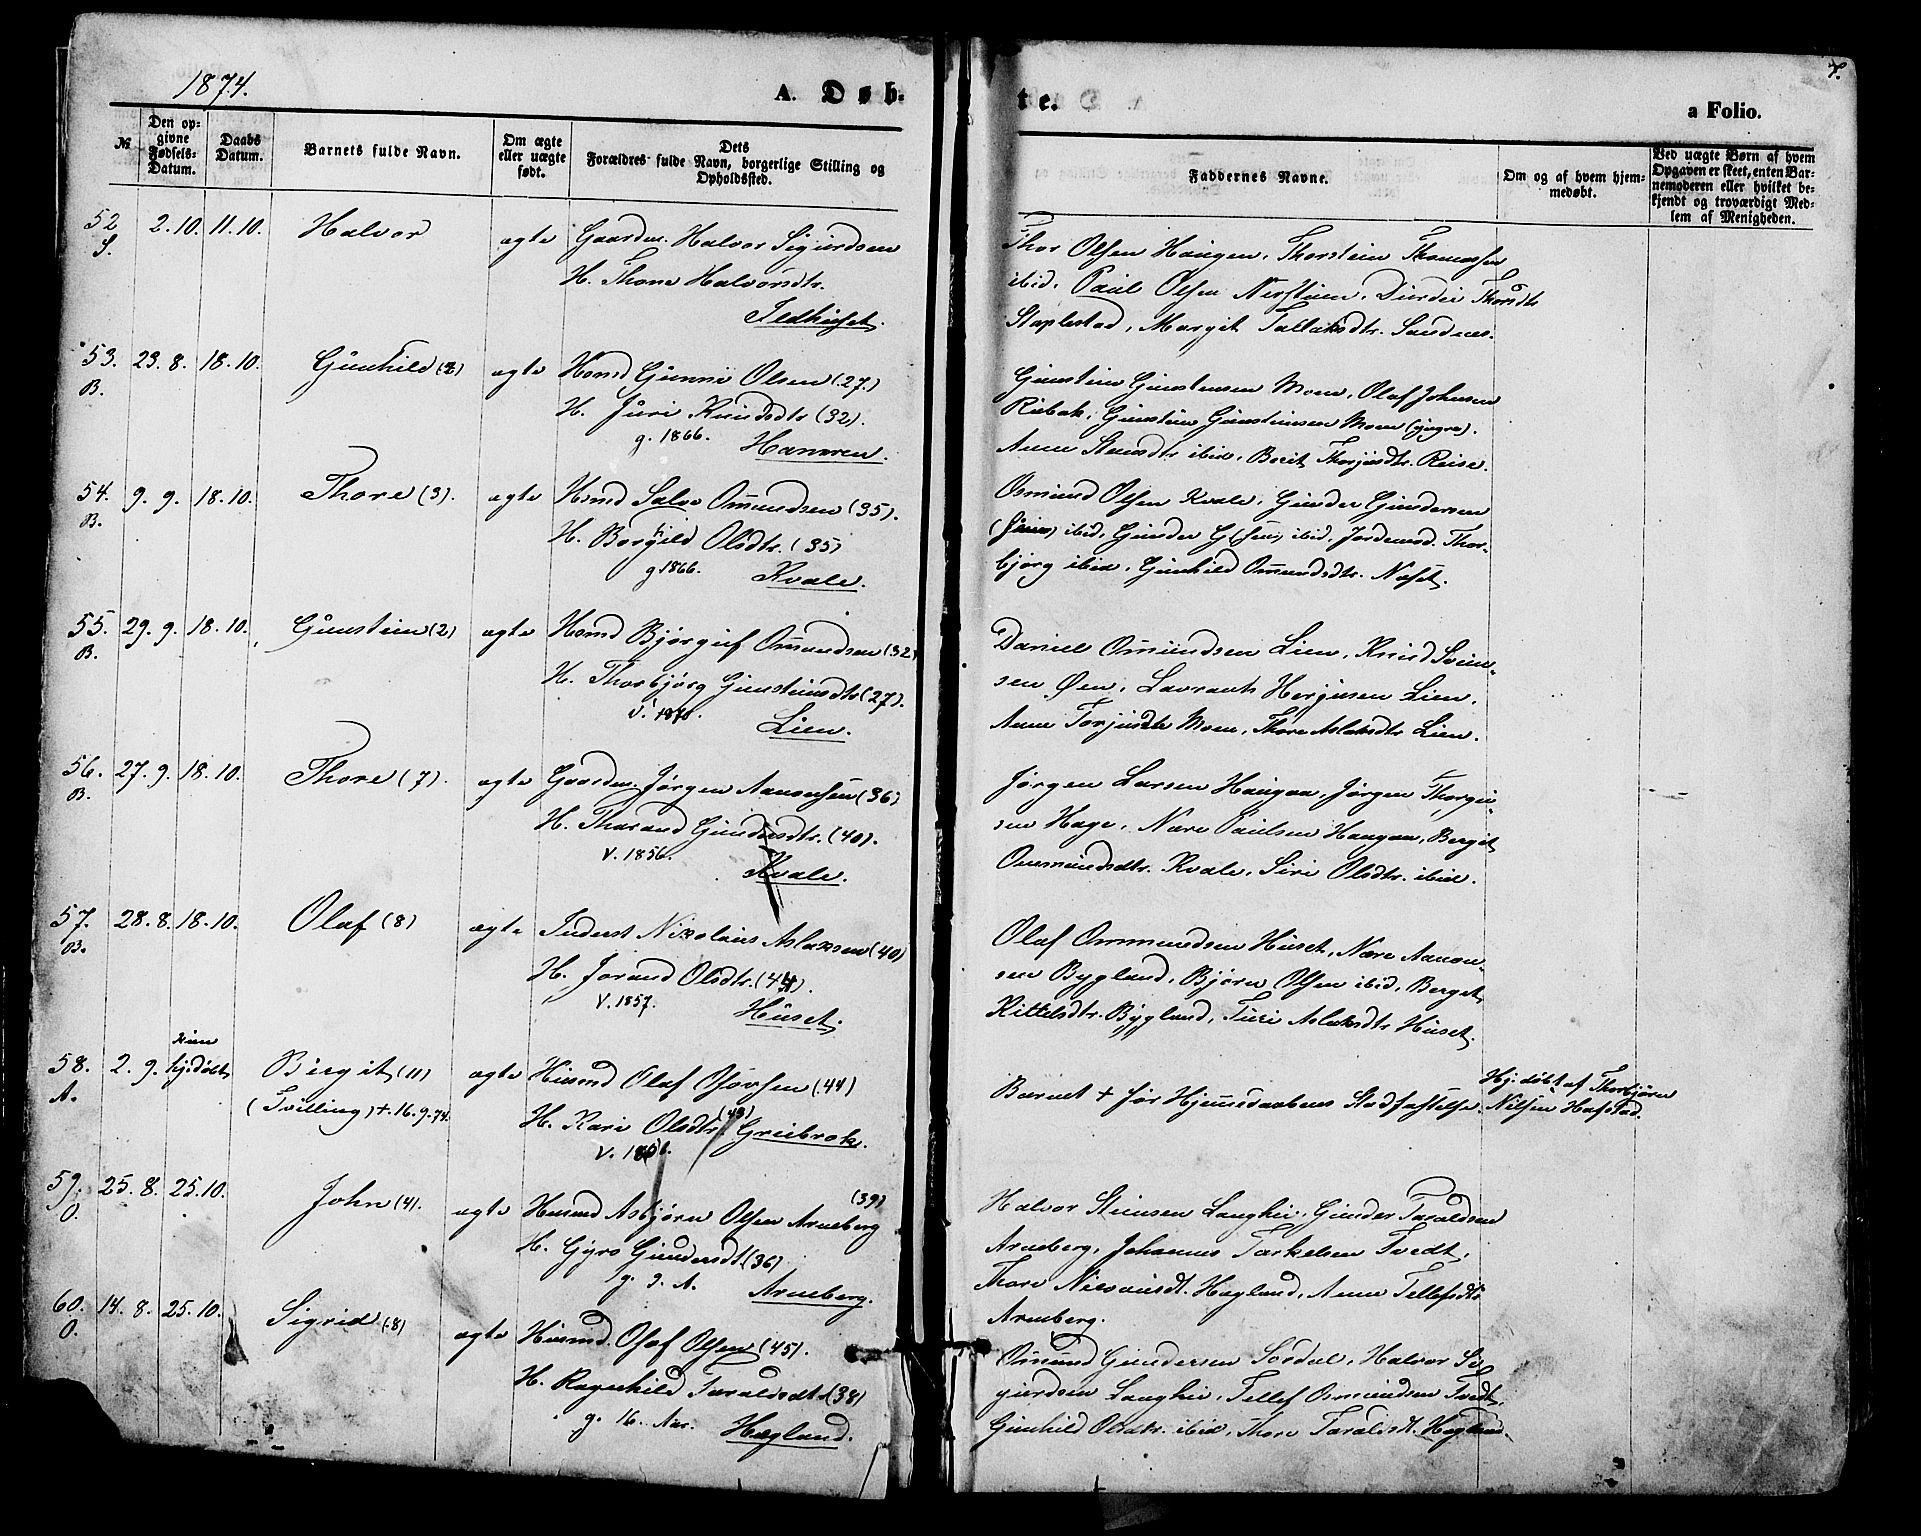 1874.
A. Døb-
te.
a Folio.
7.
№
Den op-
givne
Fødsels-
Datum.
Daabs
Datum.
Barnets fulde Navn.
Om ægte
eller uægte
født.
Dets
Forældres fulde Navn, borgerlige Stilling og
Opholdssted.
Faddernes Navne.
Om og af hvem hjem-
medøbt.
Ved uægte Børn af hvem
Opgaven er skeet, enten Bar-
nemoderen eller hvilket be-
kjendt og troværdigt Med-
lem af Menigheden.
52 2.10. 11.10. Halvor ægte Gaardm. Halvor Sigurdsen
S.
H. Thone Halvorsdtr.
Thor Olsen Haugen, Thorstein Thomassen
ibid, Paul Olsen Nerstuen, Durdei Thorsdtr
Staplestad, Margit Tallaksdtr. Sandnes.
53. 23.8. 18.10. Gunhild (2) ægte Hsmd Gunni Olsen (27.)
B.
H. Juri Knudsdtr (32)
g. 1866. Hamren.
Gunstein Gunsteinsen Moen, Olaf Johnsen
Risbak, Gunstein Gunsteinsen Moen (yngre).
Anne ibid, Berit Thorjusdtr.
54. 9.9. 18.10. Thore (3). ægte Hsmd Salve Omundsen (35).
B.
H. Borgild Olsdtr. (35)
g 1866. Kvale.
Osmund Olsen Kvale, Gunder Gundersen
ibid, Gunder G(sen) ibid, Jordemod. Thor-
bjørg ibid, Gunhild Omundsdtr. Næset.
55. 29.9. 18.10. Gunstein (2) ægte Hsmd Bjørguf Omundsen (32)
B.
H. Thorbjørg Gunsteinsdtr (27).
V. 1870. Lien.
Daniel Omundsen Lien, Knud Svein-
sen Øen, Lavrants Herjusen Lien,
Anne Torjusdtr Moen, Thore Aslaksdtr Lien.
56. 27.9. 18.10. Thore (7). ægte Gaardm. Jørgen Aanonsen (36)
B.
H. Tharand Gundersdtr. (40).
V. 1856. Kvale.
Jørgen Larsen Haugaa, Jørgen Thorgri-
sen Hage, Nære Paulsen Haugaa, Berget
Ommundsdtr. Kvale, Siri Olsdtr. ibid.
57. 28.8. 18.10. Olaf (8) ægte Inderst Nikolaus Aslaksen (40)
B.
H. Jorand Olsdtr. (44).
V. 1857. Huset.
Olaf Ommundsen Huset, Nære Aanon-
sen Bygland, Bjørn Olsen ibid, Berget
Kittelsdtr. Bygland, Turi Aslaksdtr Huset.
58. 2.9. kun
hj.døbt Birgit (11) ægte Husmd Olaf (44)
A.
(Tvilling) +. 16.9.74. H. Kari Olsdtr. (49) Grubrok.
Barnet + før Hjemmedaabens Stadfæstelse.
Hj. døbt af Thorbjørn
Nilsen Hafstad.
59. 25.8. 25.10. John (4). ægte Husmd Asbjørn Olsen Arneberg (39)
O.
H. Gyro Gundersdt (36)
g. 9. A. Arneberg.
Halvor Stiensen Langhei, Gunder Taraldsen
Arneberg, Johannes Tarkelsen Tvedt,
Thore Hægland, Anne Tellefsdtr
Arneberg.
60. 14.8. 25.10. Sigrid (8) ægte Husmd. Olaf Olsen (45).
O.
H. Ragnhild Taraldsdtr (38)
g. 16. Aar. Hægland.
Omund Gundersen Sordal, Halvor Si-
gurdsen Langhei, Tellef Osmundsen Tvedt,
Gunhild Olsdtr. ibid, Thore Taraldsdt. Hægland.